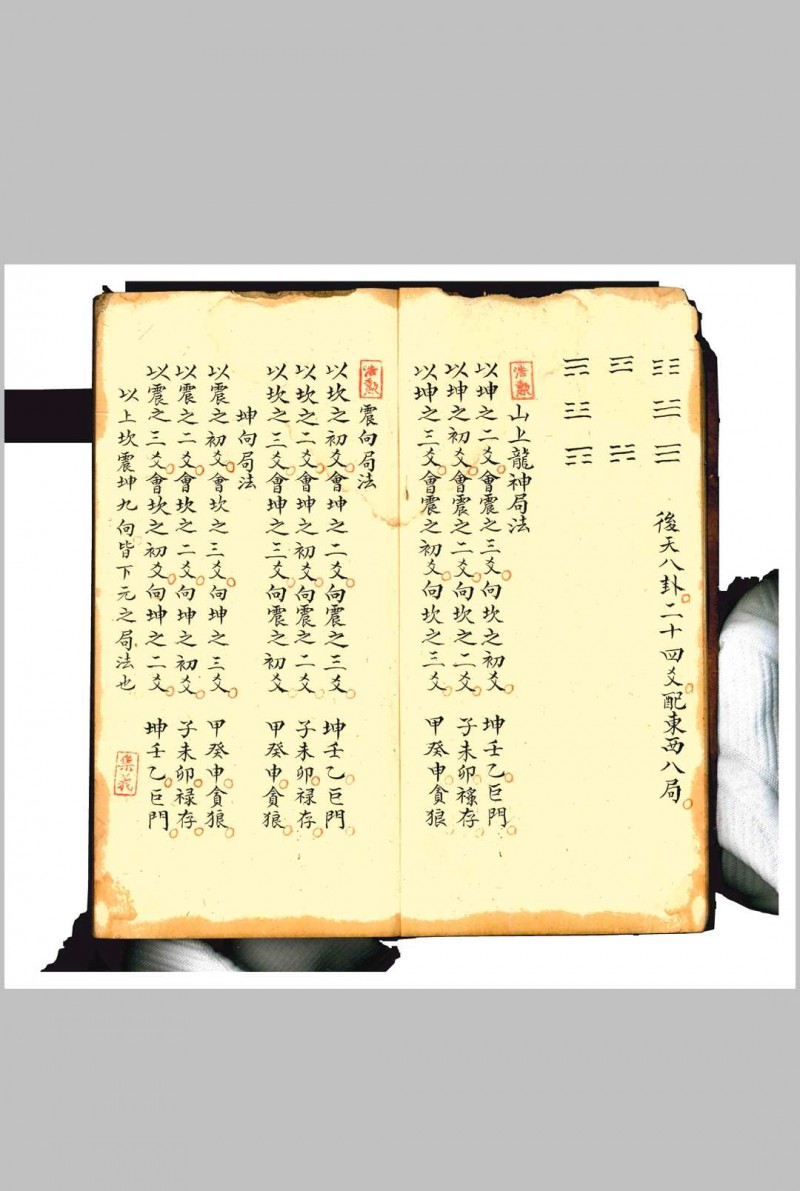 後天八卦二十四爻配東西八局
山上龍神局法
以坤之二爻會震之三爻向坎之初爻 坤壬乙巨門
以坤之初爻會震之二爻向坎之二爻 子未卯禄存
以坤之三爻會震之初爻向坎之三爻 甲癸申貪狼
震向局法
以坎之初爻會坤之二爻向震之三爻 坤壬乙巨門
以坎之二爻會坤之初爻向震之二爻 子未卯禄存
以坎之三爻會坤之三爻向震之初爻 甲癸申貪狼
坤向局法
以震之初爻會坎之三爻向坤之三爻 甲癸申貪狼
以震之二爻會坎之二爻向坤之初爻 子未卯禄存
以震之三爻會坎之初爻向坤之二爻 坤壬乙巨門
以上坎震坤九向皆下元之局法也